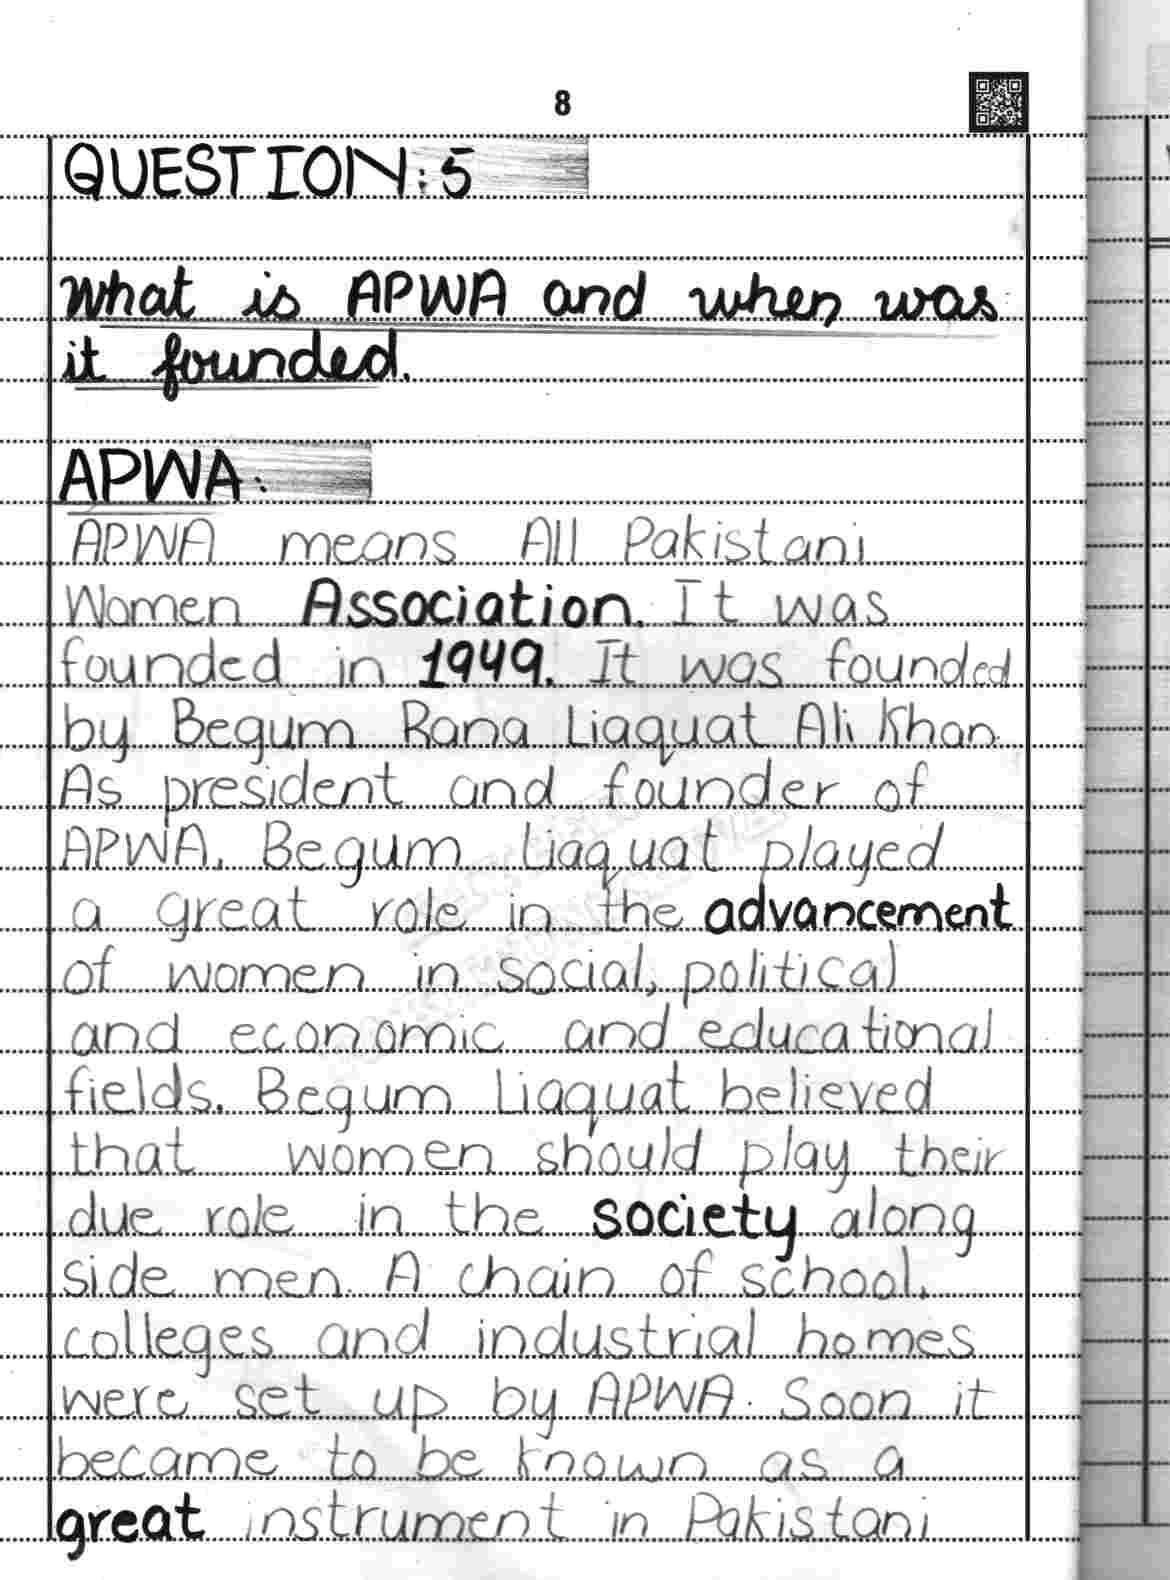 8
QUESTION: 5
What is APWA and when was
it founded.
APWA:
APWA means All Pakistani
Women Association. It was
founded in 1949. It was founded
by Begum Rana Liaquat Ali Khan.
As president and founder of
APWA. Begum Liaquat played
a great role in the advancement
of women in social, political
and economic and educational
fields. Begum Liaquat believed
that women should play their
due role in the society along
side men. A chain of school,
colleges and industrial homes
were set up by APWA. Soon it
became to be known as a
great instrument in Pakistani